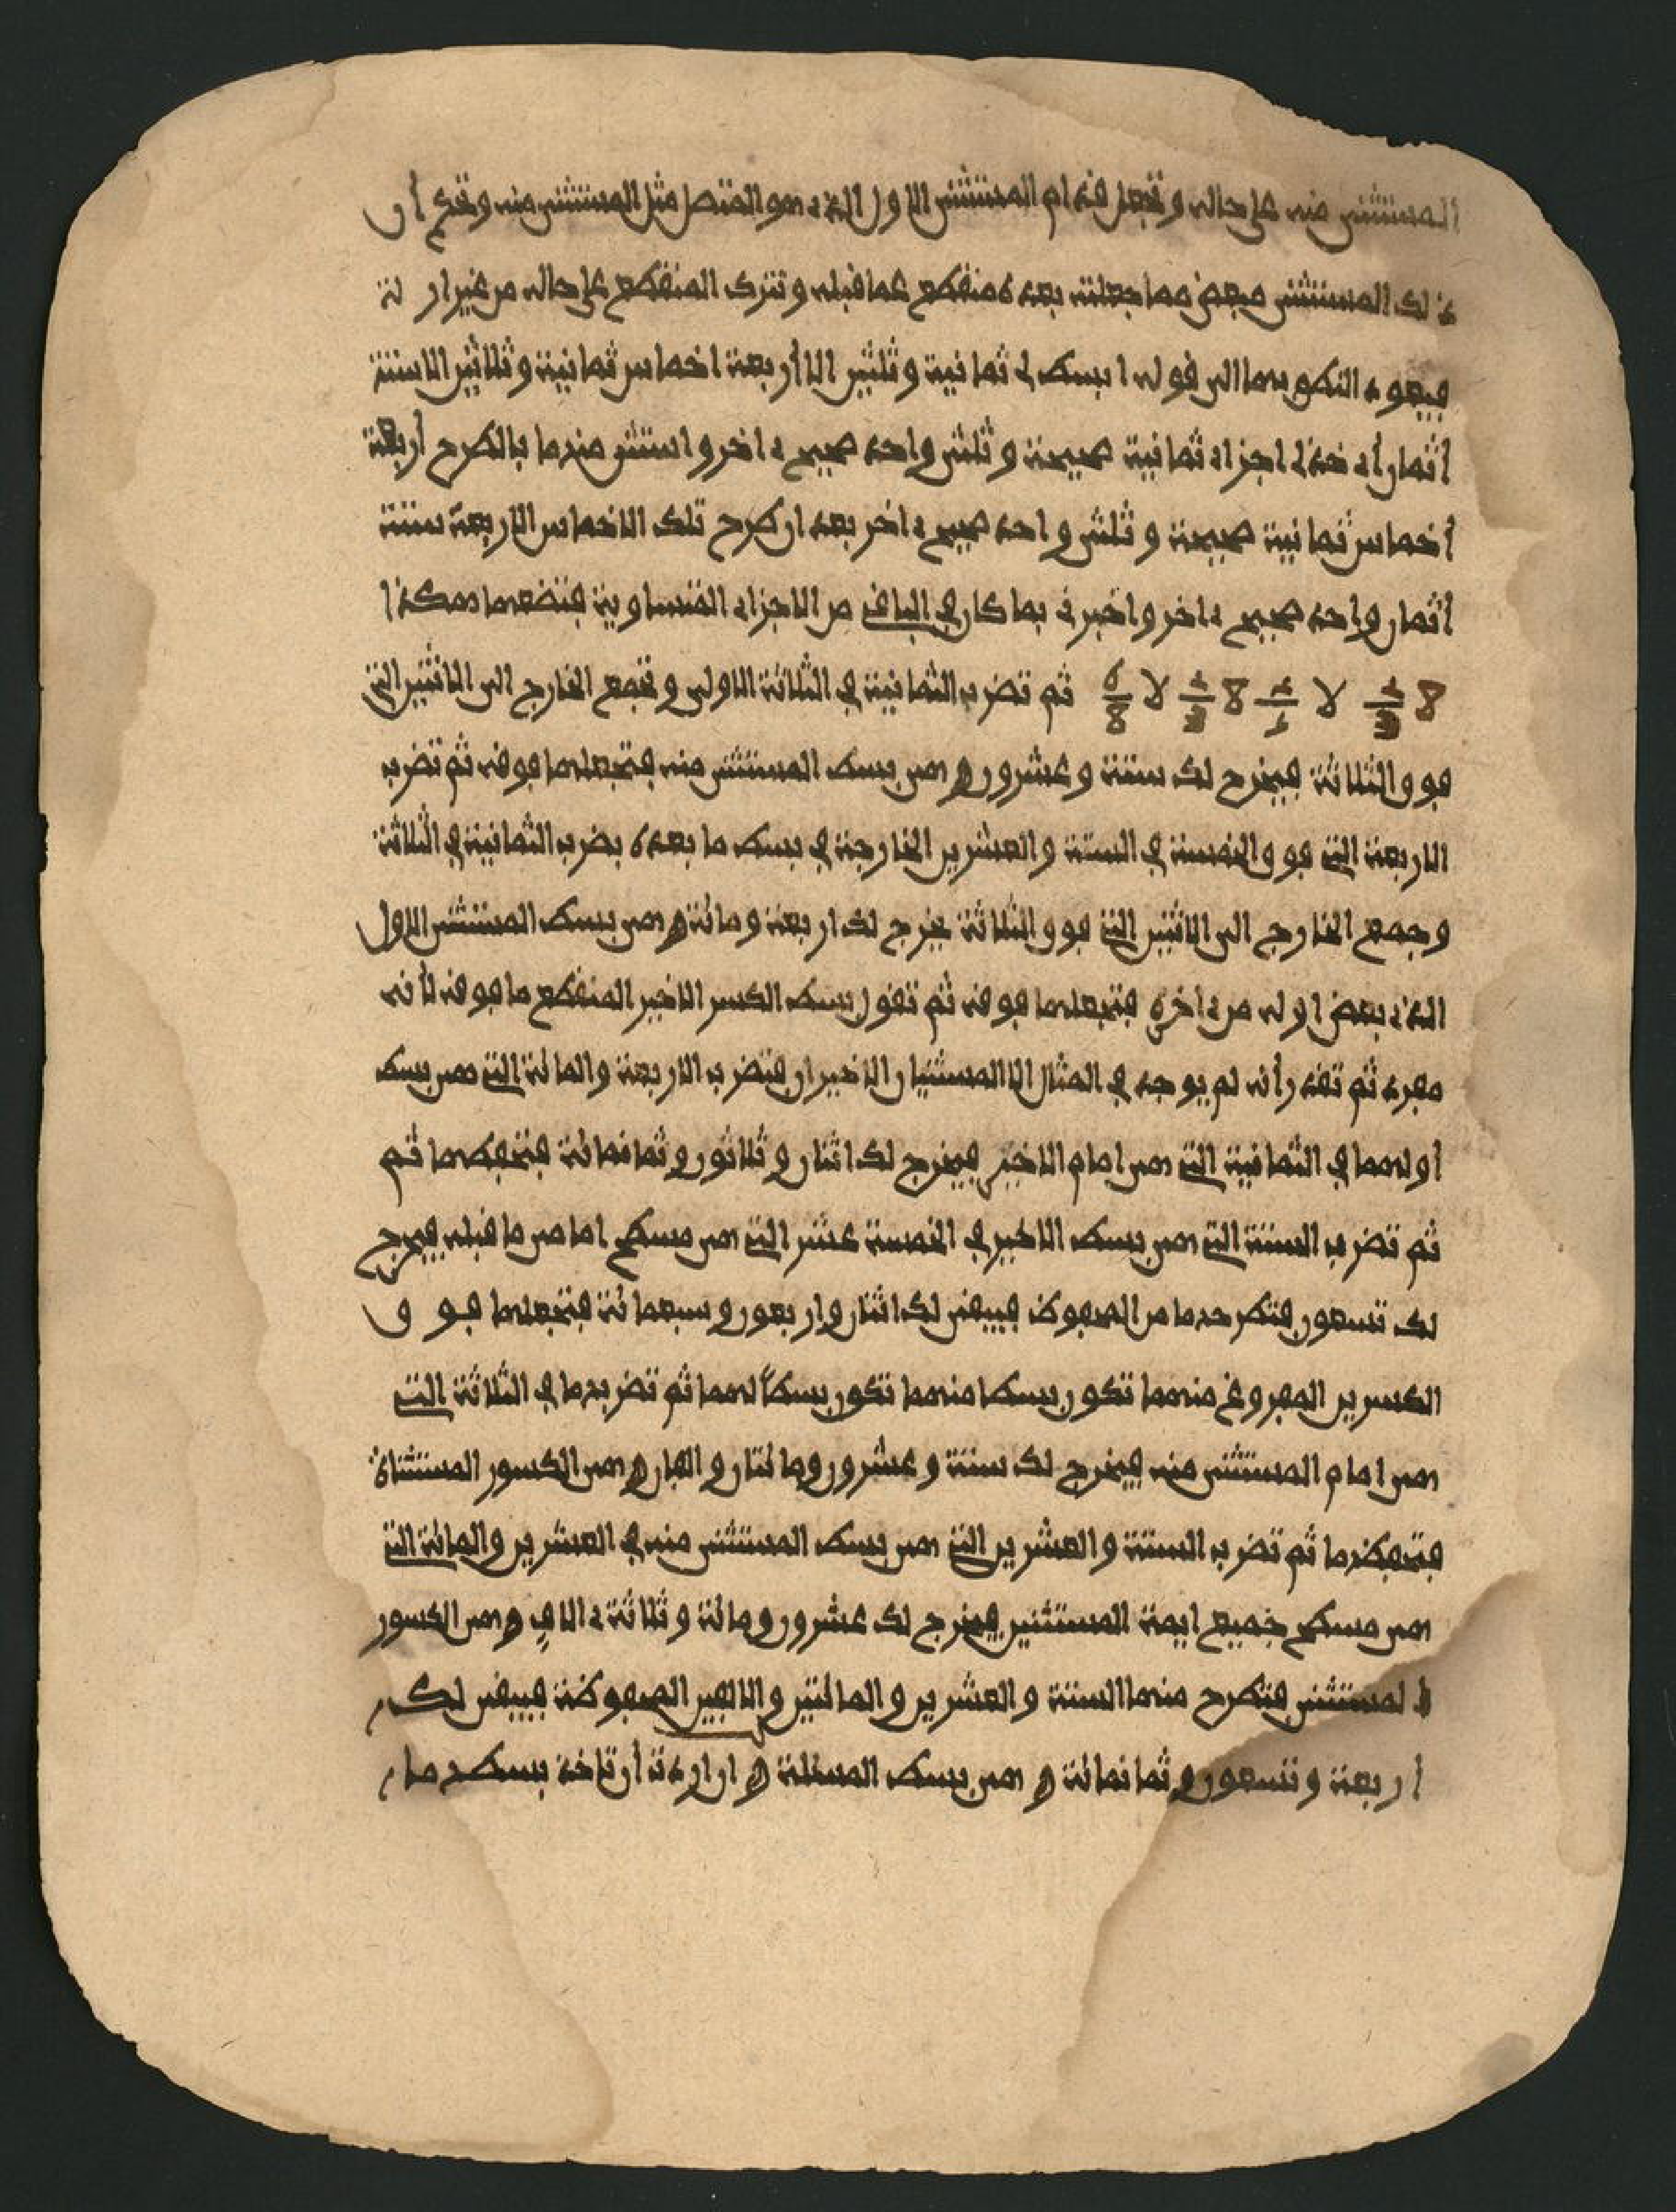 المستثنى منه على حاله وتجعل قدام المستثنى الاول الذي هو المتصل مثل المستثنى منه وتقدر أن
ذلك المستثنى مبعض مما جعلته بعده منقطع عما قبله وتترك المنقطع على حاله من غير ازالة
فيعود النطق بها الى قوله ابسط لي ثمانية وثلثين الا أربعة اخماس ثمانية وثلاثين الا ستة
أثمان أي خذ لي اجزاء ثمانية صحيحة وثلثي واحد صحيح ءاخر واستثن منهما بالطرح أربعة
أخماس ثمانية صحيحة وثلثي واحد صحيح ءاخر بعد ان طرح تلك الاخماس الاربعة ستة
أثمان واحد صحيح ءاخر واخبرني بما كان في الباقي من الاجزاء المتساوية فتضعها هكذا
8 2/3 لا 4/5 8 2/3 لا 6/8 ثم تضرب الثمانية في الثلاثة الاولى وتجمع الخارج الى الاثنين التي
فوق الثلاثة فيخرج لك ستة وعشرون وهي بسط المستثنى منه فتجعلها فوقه ثم تضرب
الاربعة التي فوق الخمسة في الستة والعشرين الخارجة في بسط ما بعده بضرب الثمانية في الثلاثة
وجمع الخارج الى الاثنين التي فوق الثلاثة يخرج لك اربعة ومائة وهي بسط المستثنى الاول
الذي بعض اوله من ءاخره فتجعلها فوقه ثم تقول بسط الكسر الاخير المنقطع ما فوقه لأنه
مفرد ثم تقدر أنه لم يوجد في المثال الا المستثنيان الاخيران فتضرب الاربعة والمائة التي هي بسط
اولهما في الثمانية التي هي امام الاخير فيخرج لك اثنان وثلاثون وثمانمائة فتحفظها ثم
ثم تضرب الستة التي هي بسط الاخير في الخمسة عشر التي هي مسطح امامي ما قبله فيخرج
لك تسعون فتطرحها من المحفوظ فيبقى لك اثنان واربعون وسبعمائة فتجعلها فوق
الكسرين المفروغ منهما تكون بسطا منهما تكون بسطاً لهما ثم تضربها في الثلاثة التي
هي امام المستثنى منه فيخرج لك ستة وعشرون ومائتان والفان وهي الكسور المستثناة
فتحفظها ثم تضرب الستة والعشرين التي هي بسط المستثنى منه في العشرين والمائة التي
هي مسطح جميع ايمة المستثنين فيخرج لك عشرون ومائة وثلاثة ءالاف وهي الكسور
المستثنى فتطرح منها الستة والعشرين والمائتين والالفين المحفوظة فيبقى لك
أربعة وتسعون وثمانمائة وهي بسط المسئلة وان اردت أن تاخذ بسطها